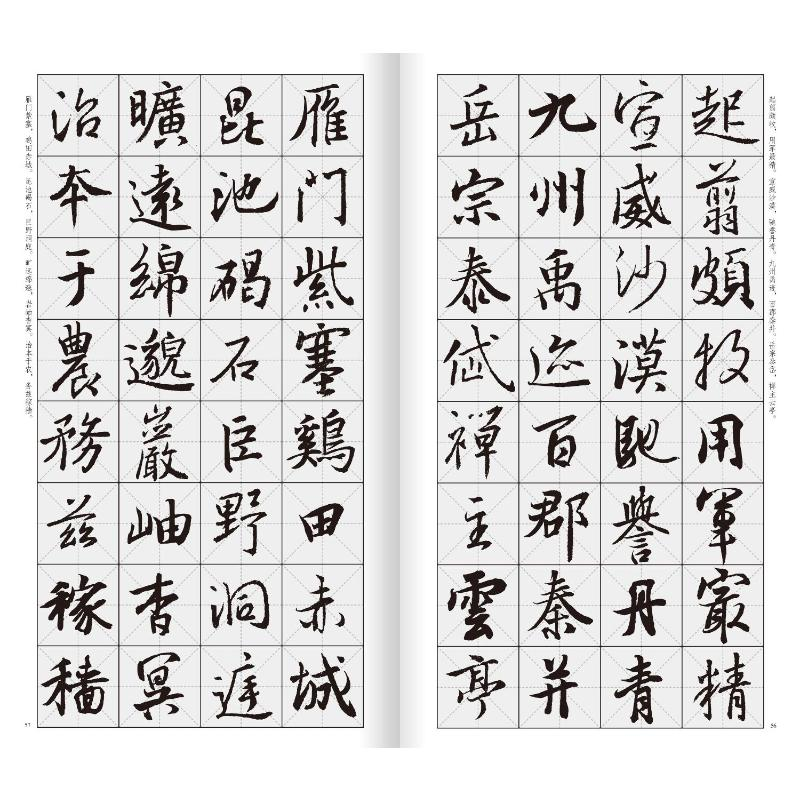 起翦颇牧，用军最精。宣威沙漠，驰誉丹青。九州禹迹，百郡秦并。岳宗泰岱，禅主云亭。
起翦頗牧用軍最精
宣威沙漠馳譽丹青
九州禹迹百郡秦并
岳宗泰岱禪主雲亭
56
雁門紫塞鷄田赤城
昆池碣石巨野洞庭
曠遠綿邈巖岫杳冥
治本于農務兹稼穡
雁门紫塞，鸡田赤城。昆池碣石，巨野洞庭。旷远绵邈，岩岫杳冥。治本于农，务兹稼穑。
57